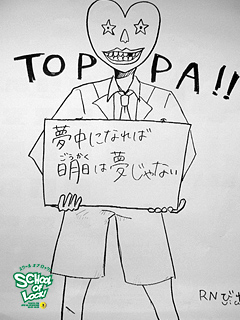 TOPPA!!
夢中になれば
ごうかく
は夢じゃない
SCHOOL
OF
LOCK!
RN